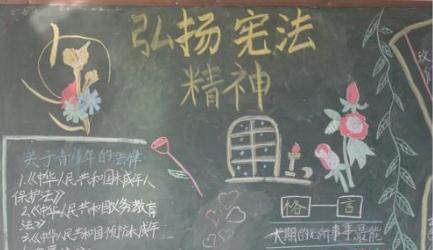 弘扬宪法
精神
关于青少年的法律
1.《中华人民共和国未成年人
保护法》
2.《中华人民共和国义务教育
法》
3.《中华人民共和国预防未成年
格言